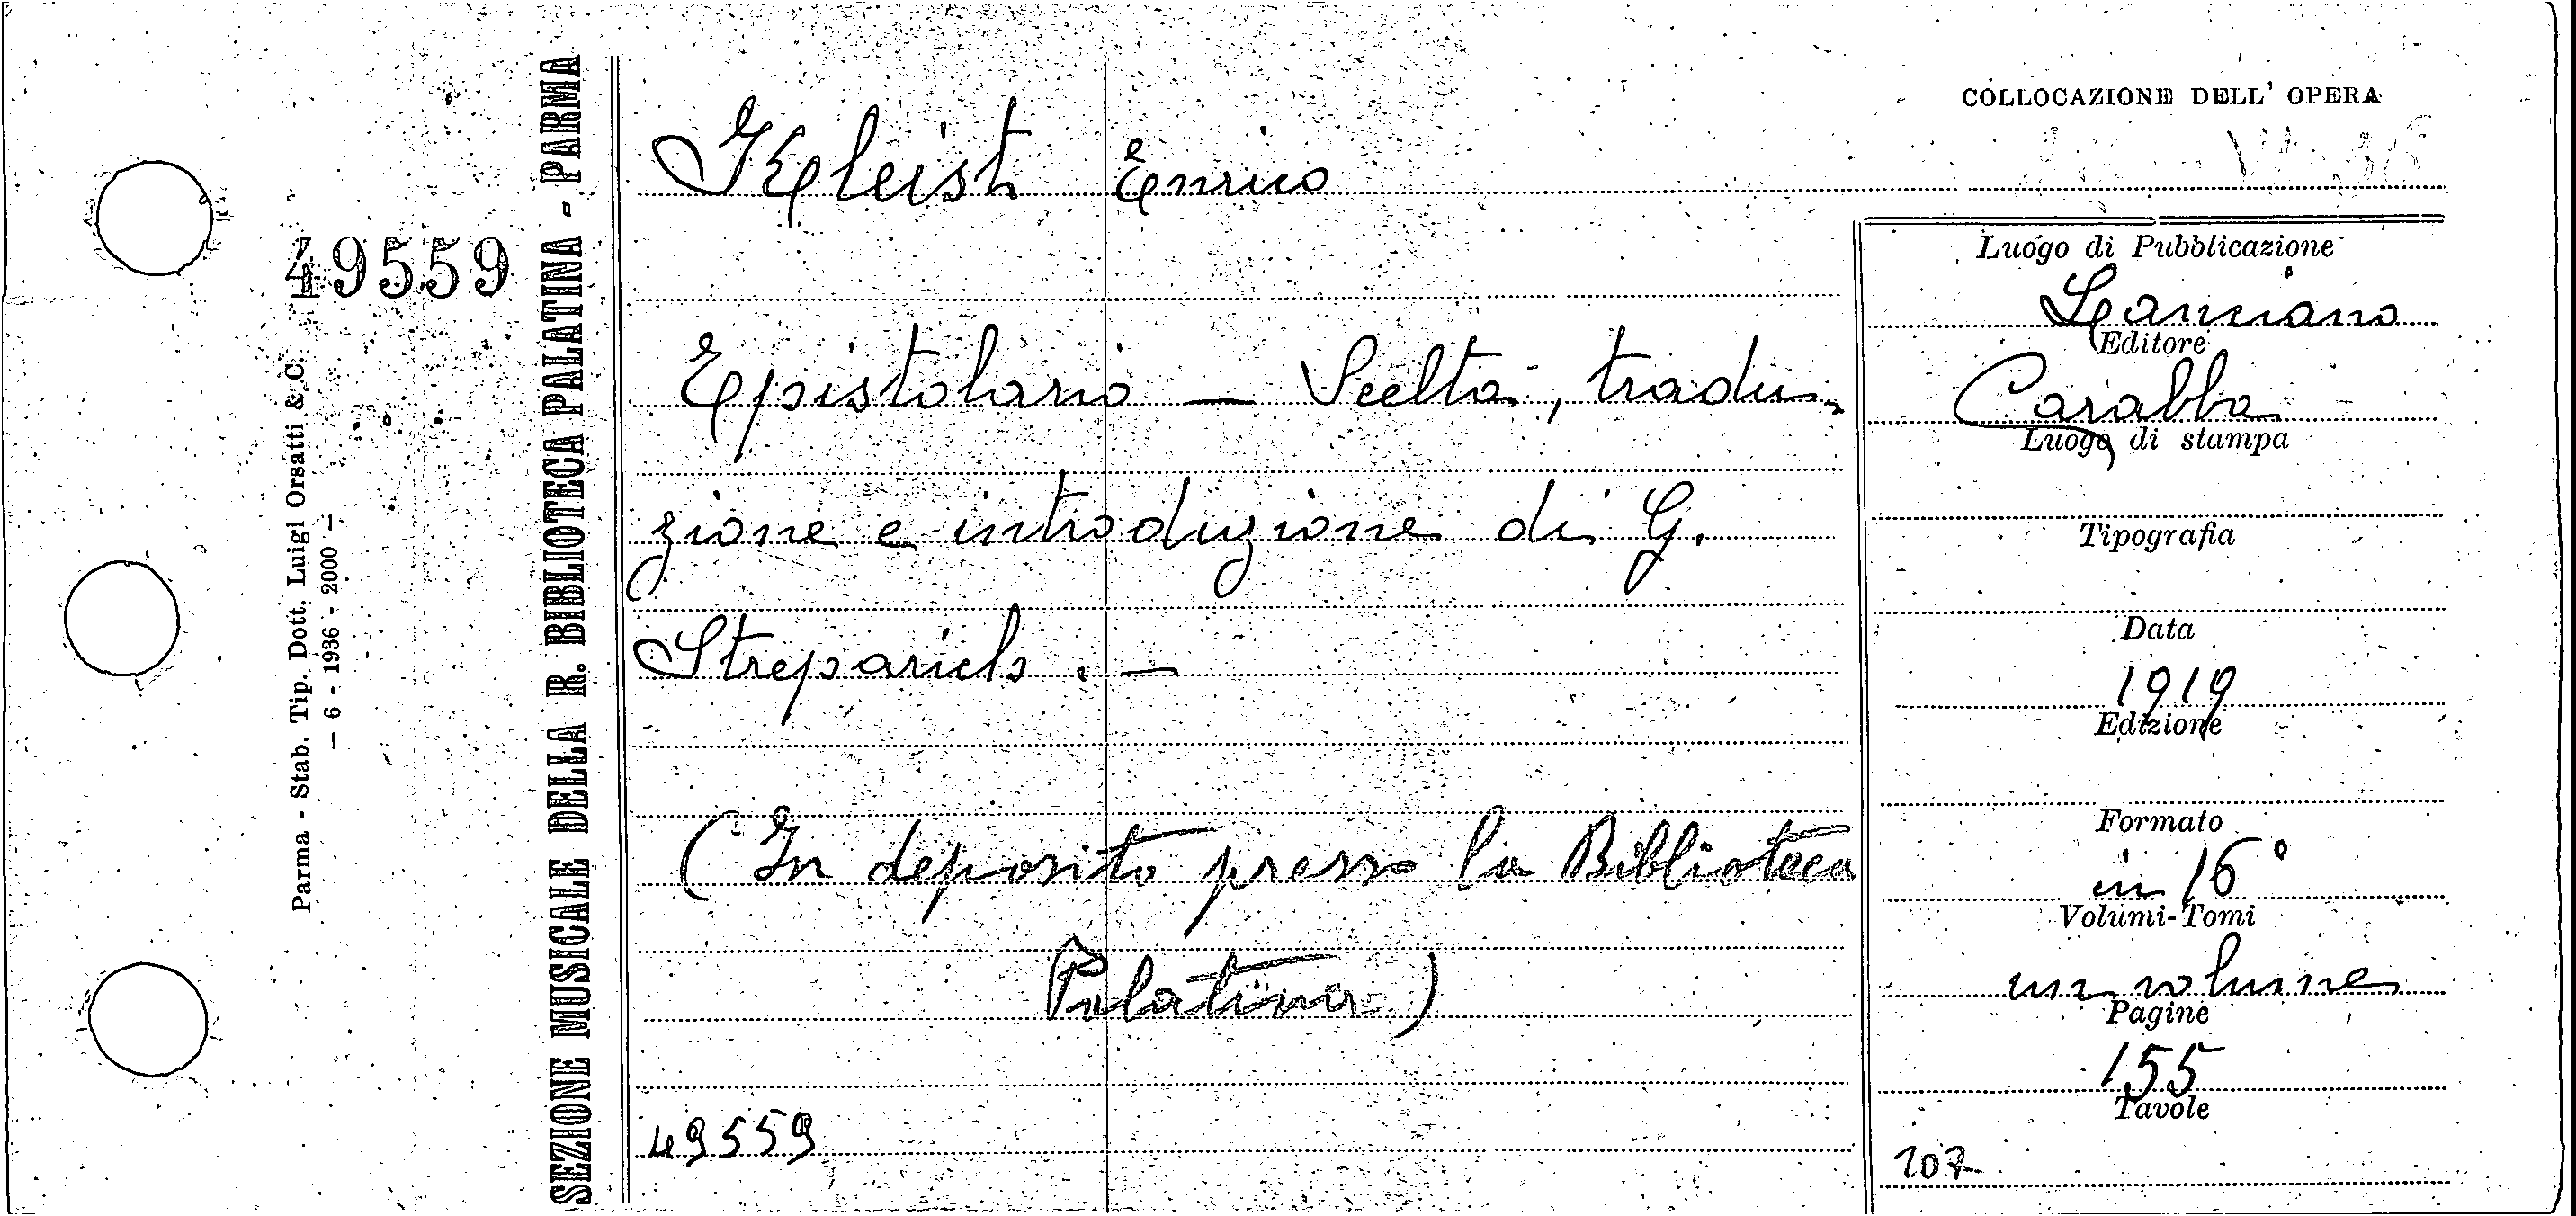 COLLOCAZIONE DELL' OPERA
Kleist Enrico
49559
Parma - Stab. Tip. Dott. Luigi Orsatti & C.
— 6 - 1936 - 2000 —
SEZIONE MUSICALE DELLA R. BIBLIOTECA PALATINA - PARMA
Epistolario — Scelta, tradu-
zione e introduzione di G.
Streparich. —
(In deposito presso la Biblioteca
Palatina)
49559
Luogo di Pubblicazione
Lanciano
Editore
Carabba
Luogo di stampa
Tipografia
Data
1919
Edizione
Formato
in 16°
Volumi-Tomi
un volume
Pagine
155
Tavole
107